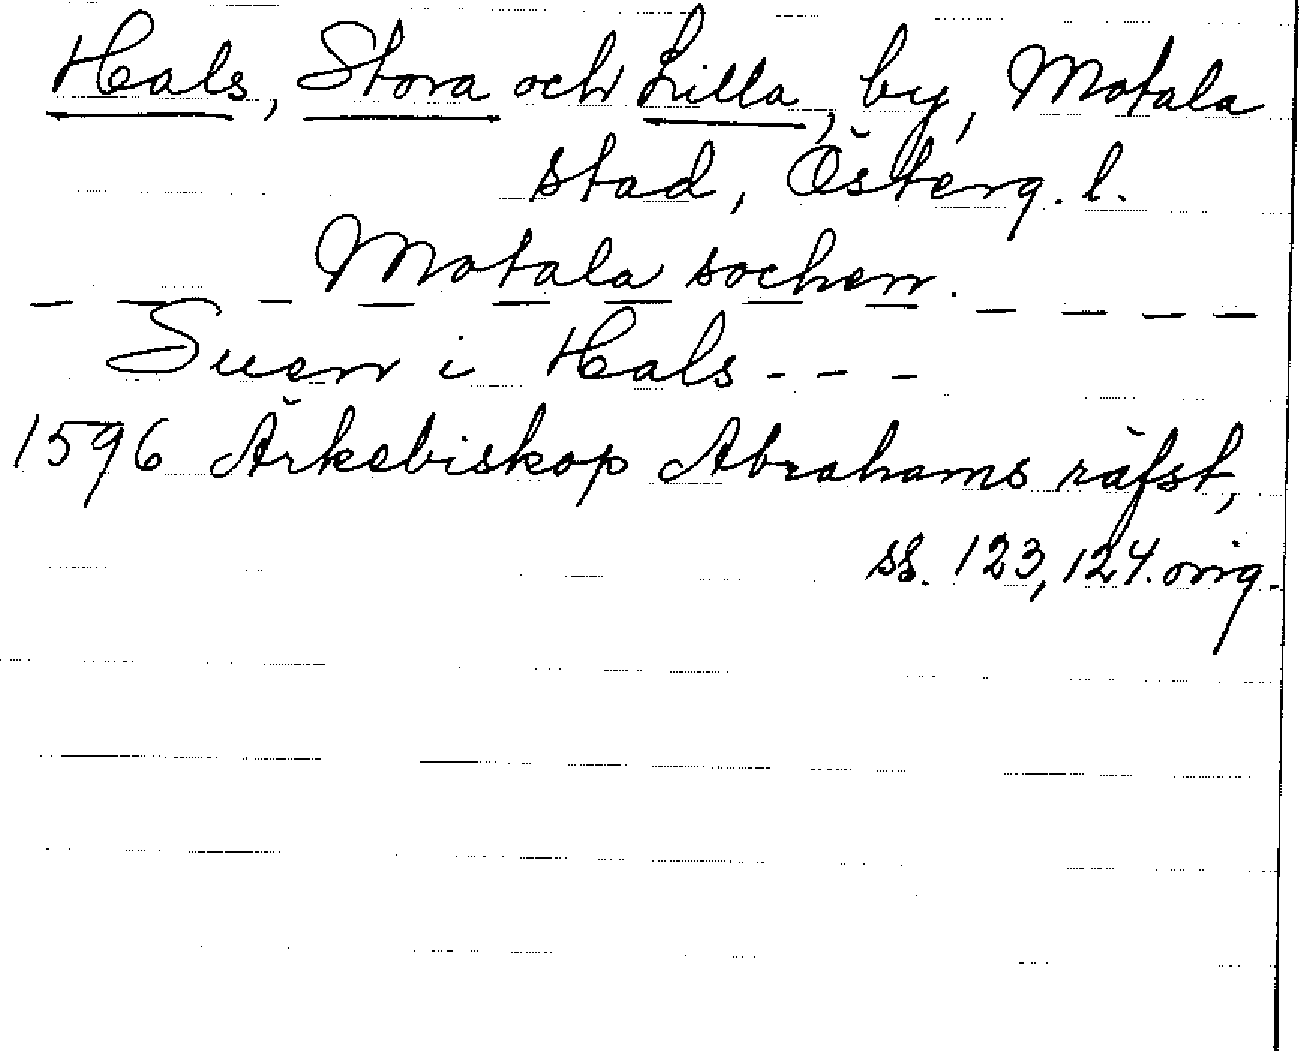 Hals, Stora och Lilla, by, Motala
stad, Österg. l.
Motala sochen.
Suen i Hals - - -
1596 Ärkebiskop Abrahams räfst,
ss. 123, 124. orig.